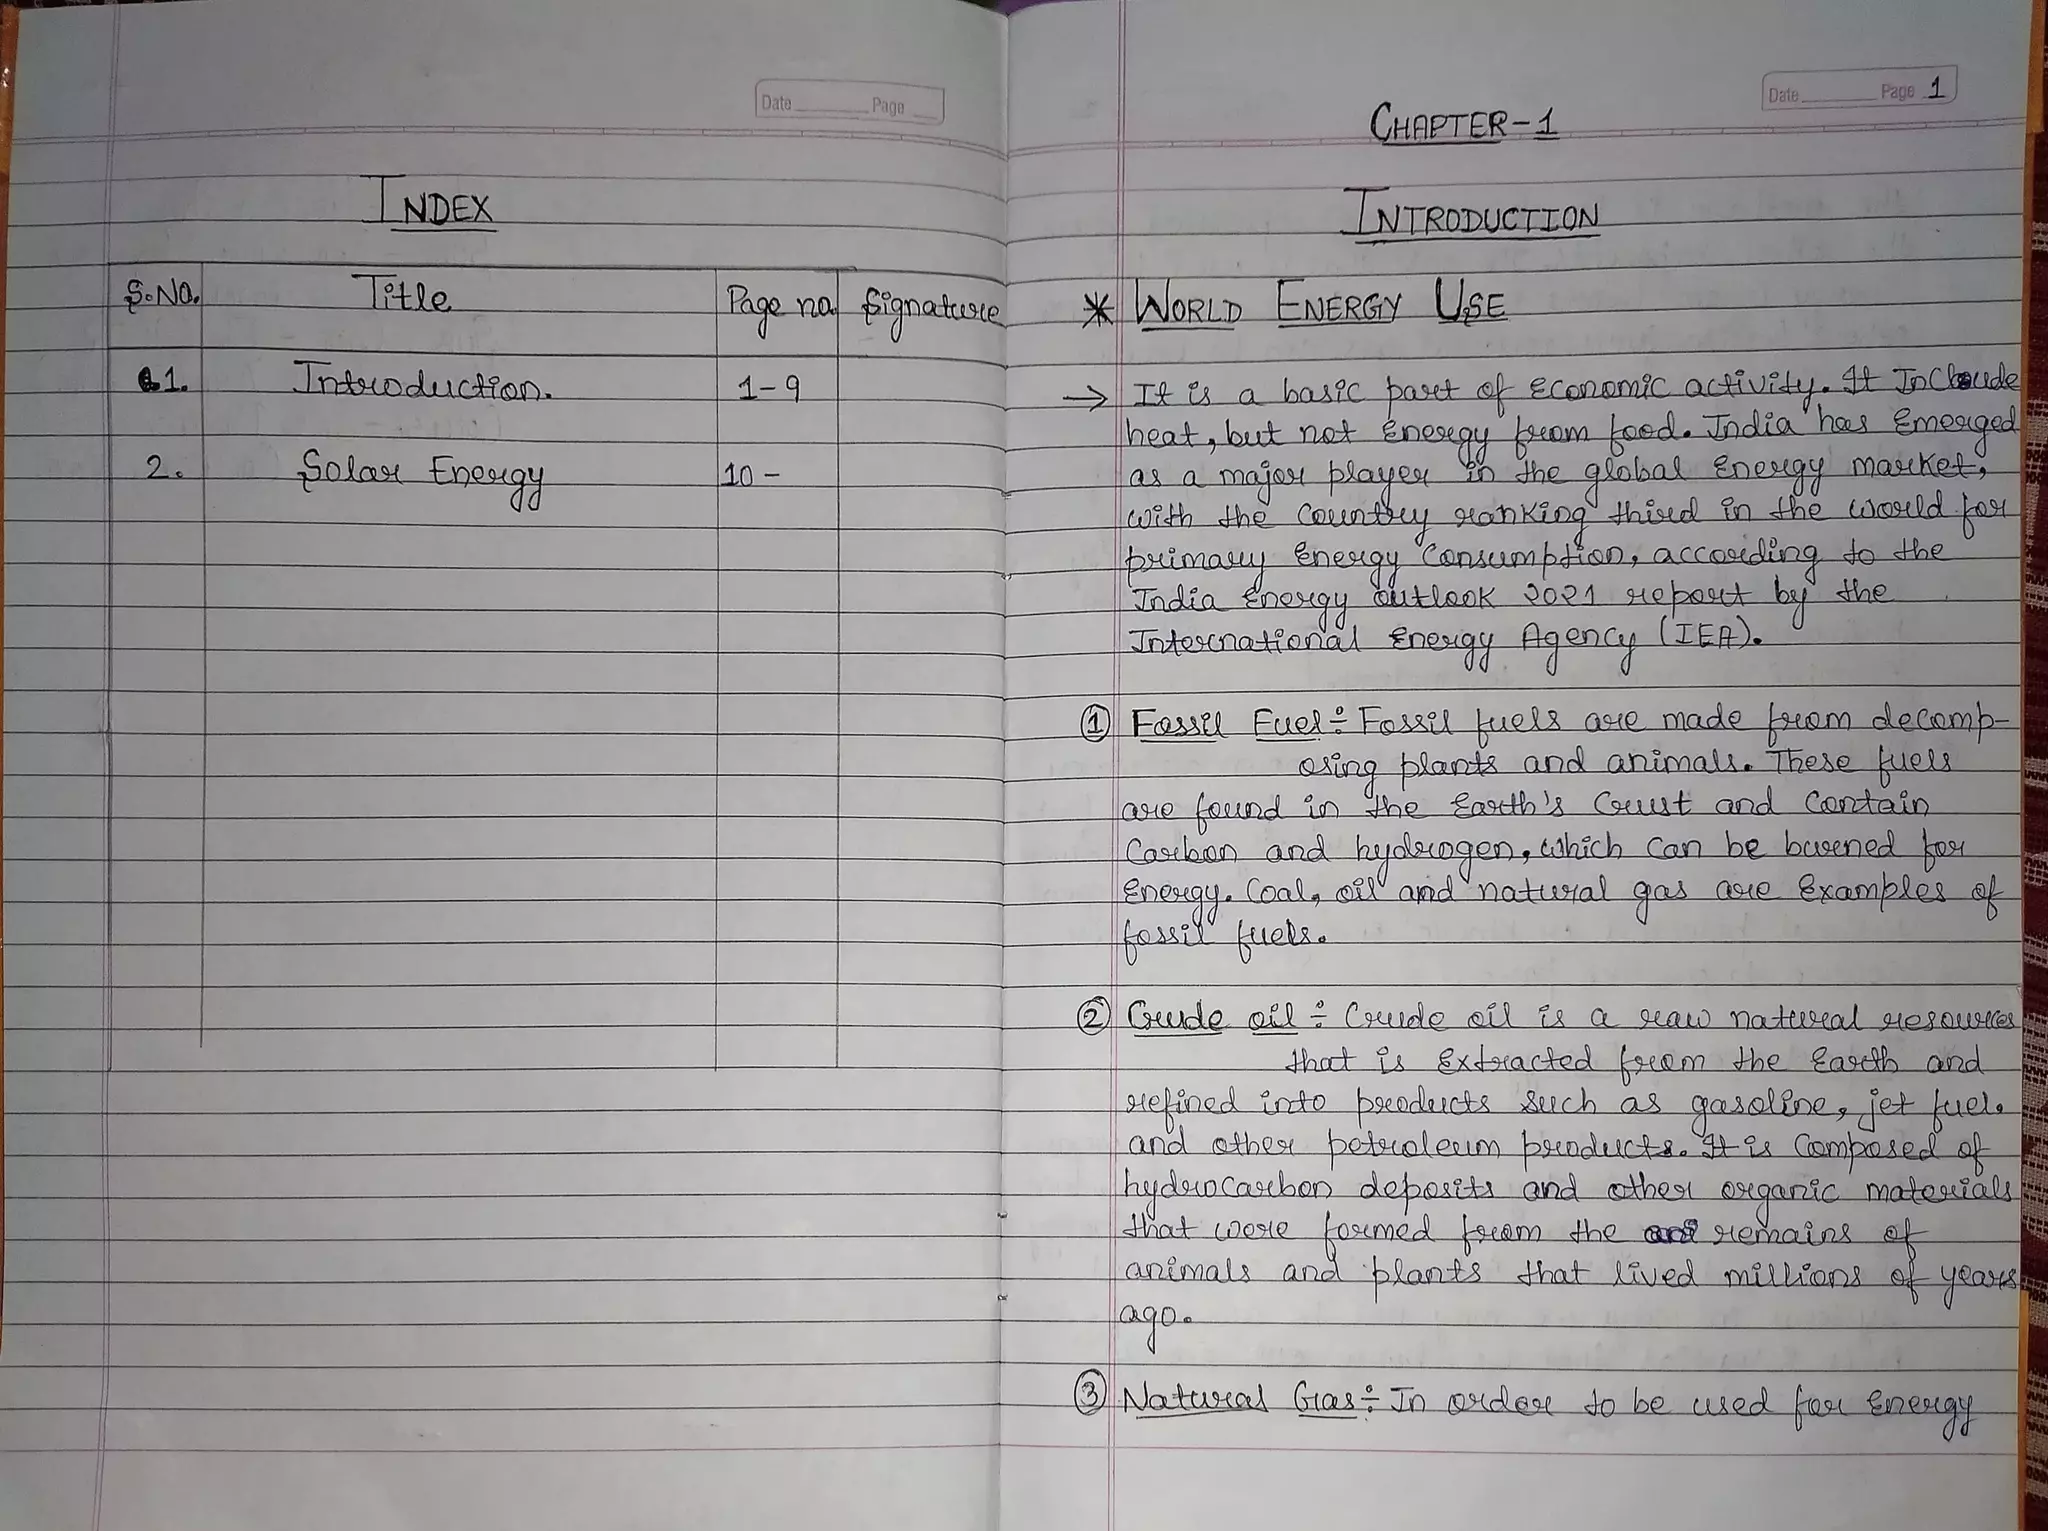 Date Page
INDEX
S.No. Title Page no. Signature
1. Introduction. 1-9
2. Solar Energy 10-
Date Page 1
CHAPTER-1
INTRODUCTION
* WORLD ENERGY USE
→ It is a basic part of Economic activity. It Include
heat, but not Energy from food. India has Emerged
as a major player in the global Energy market,
with the Country ranking third in the world for
primary Energy Consumption, according to the
India Energy outlook 2021 report by the
International Energy Agency (IEA).
① Fossil Fuel ÷ Fossil fuels are made from decomp-
osing plants and animals. These fuels
are found in the Earth's Crust and Contain
Carbon and hydrogen, which can be burned for
Energy. Coal, oil and natural gas are Examples of
fossil fuels.
② Crude oil ÷ Crude oil is a raw natural resources
that is Extracted from the Earth and
refined into products such as gasoline, jet fuel.
and other petroleum products. It is Composed of
hydrocarbon deposits and other organic materials
that were formed from the remains of
animals and plants that lived millions of years
ago.
③ Natural Gas ÷ In order to be used for Energy